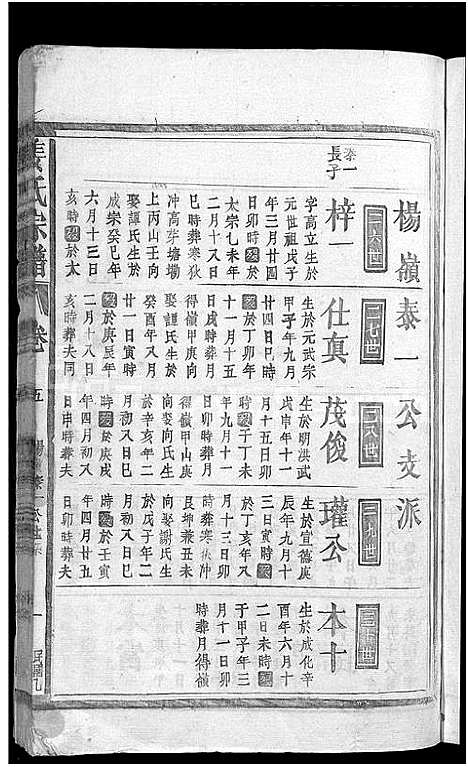 楊嶺泰一公支派
二六世
泰一
長子
梓一
字高立生於
元世祖戊子
年三月廿四
日卯時歿於
太宗乙未年
二月十八日
巳時葬寒狄
冲高芽塘塝
上丙山壬向
娶譚氏生於
成宗癸巳年
六月十三日
亥時歿於太
二七世
仕真
生於元武宗
甲子年九月
廿四日巳時
歿於丁卯年
十一月十五
日戌時葬月
得嶺甲庚向
娶譚氏生於
癸酉年八月
廿一日寅時
歿於庚辰年
二月十八日
亥時葬夫同
二八世
茂俊
生於明洪武
戊申年十一
月十五日卯
時歿于丁未
年九月十一
日卯時葬月
得嶺甲山庚
向娶向氏生
於辛亥年二
月初八日巳
時歿於庚戌
年四月初又
日申時葬夫
二九世
瓘公
生於宣德庚
辰年九月十
三日寅時歿
於丁亥年八
月十三日卯
時葬寒伏冲
艮坤兼丑未
向娶謝氏生
於戊子年二
月初八日丑
時歿於壬寅
年四月廿五
日卯時葬夫
三十世
本十
生於成化辛
酉年六月十
二日未時歿
于甲子年三
月十一日卯
時葬月得嶺
姜氏宗譜
卷五
楊嶺泰一公世系
一